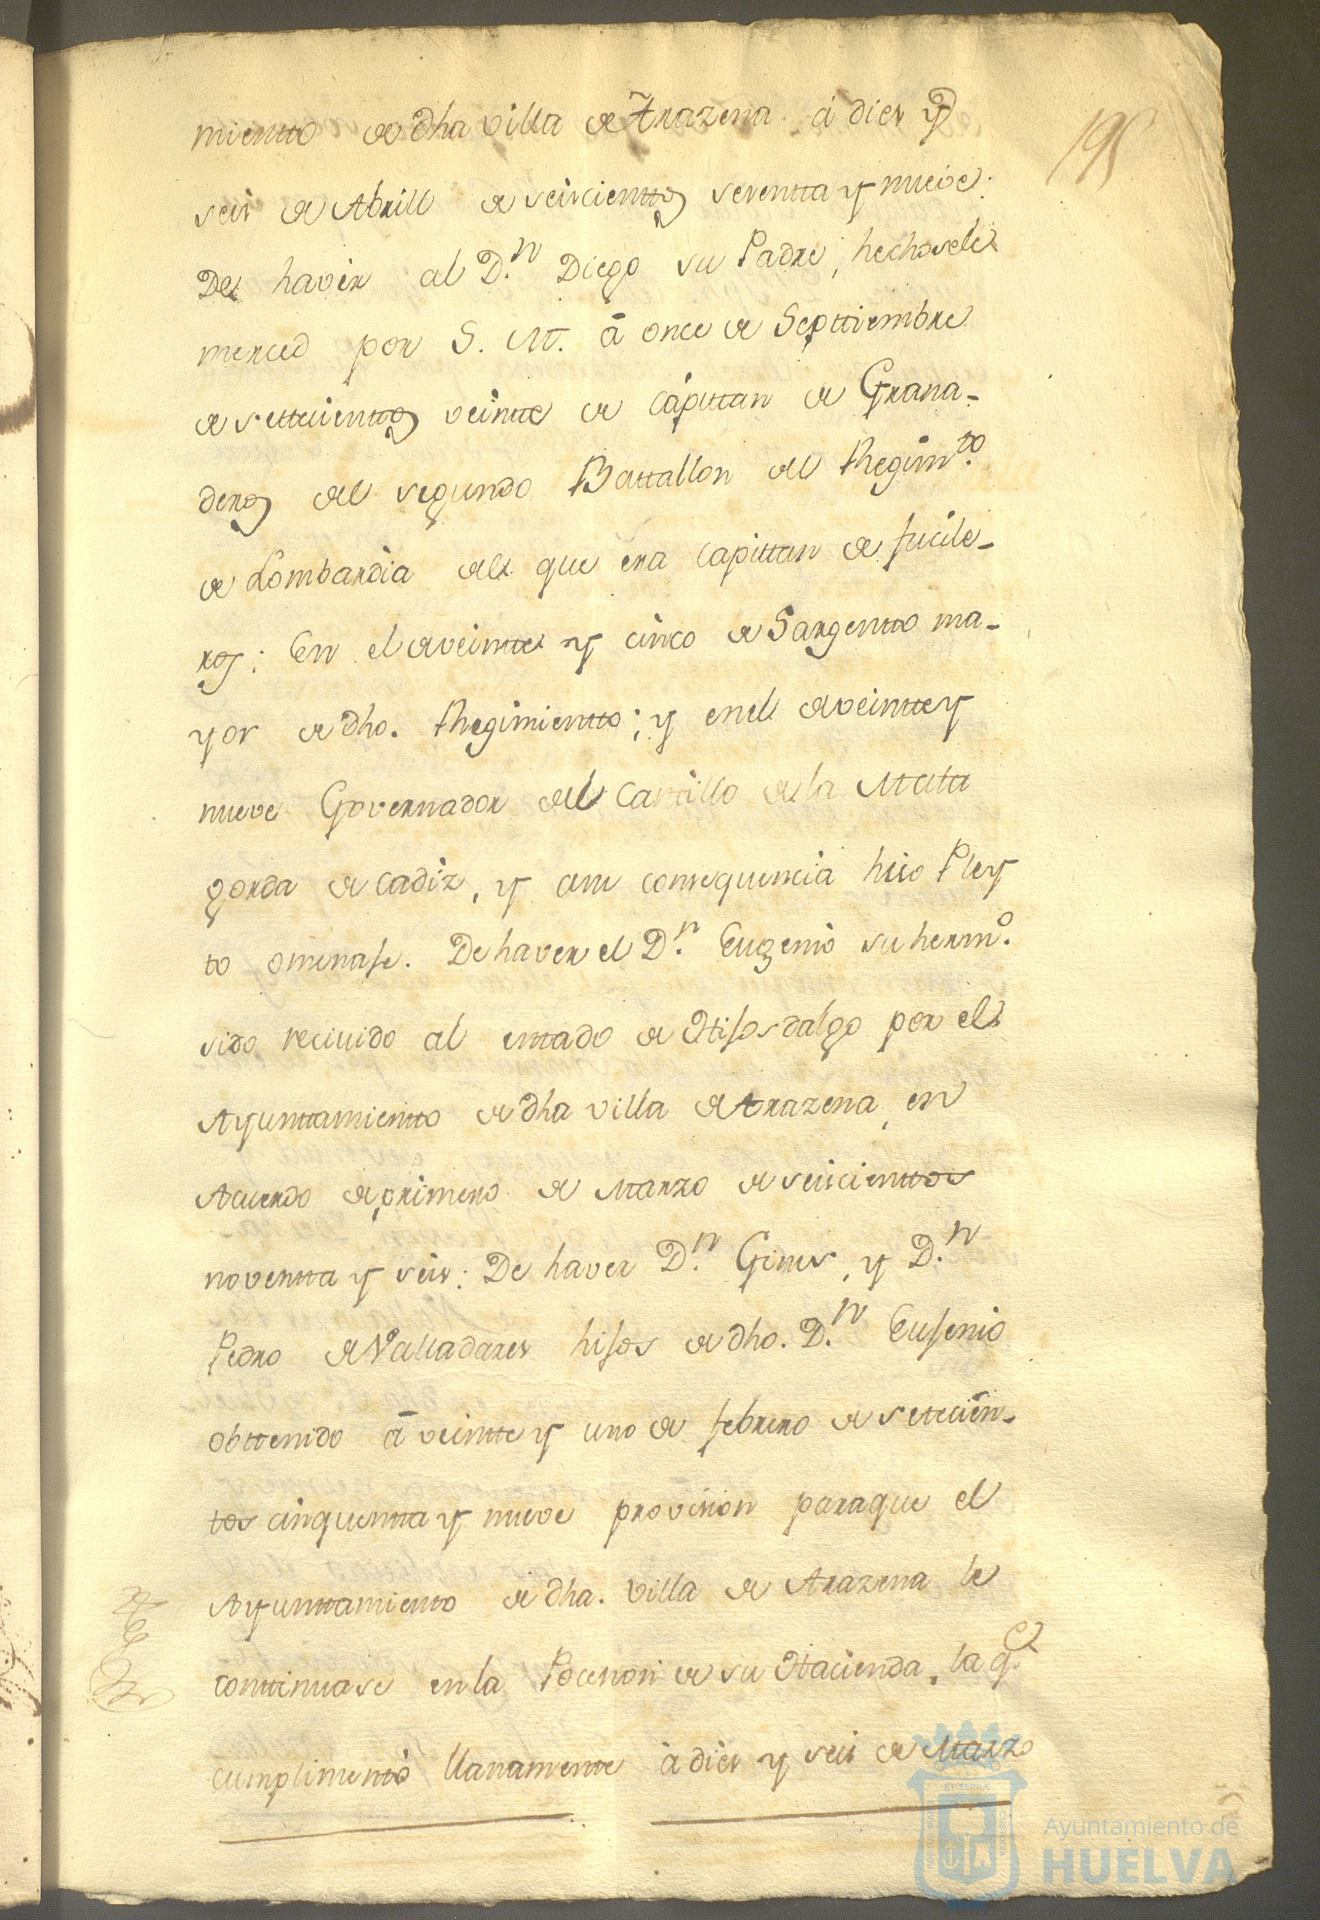 195
miento de dha villa de Arazena á diez y
seis de Abrill de seiscienttos setentta y nueve:
De haver al D.n Diego su Padre, hechosele
merced por S. M. á once de Septtiembre
de settecienttos veintte de Capittan de Grana-
deros del segundo Battallon del Regim.to
de Lombardia del que era Capittan de fucile-
ros; En el de veintte y cinco de Sargentto ma-
yor de dho. Regimientto; y en el de veintte y
nueve Governador del Castillo de la Mata
gorda de Cadiz, y en consequencia hizo Pley
to omenaje. De haver el D.n Eugenio su herm.o
sido recivido al esttado de Hijosdalgo por el
Ayunttamientto de dha villa de Arazena, en
Acuerdo de primero de Marzo de seiscienttos
noventta y seis: De haver D.n Gines, y D.n
Pedro de Valladares hijos de dho. D.n Eujenio
obttenido á veintte y uno de febrero de setecien-
tos cinquentta y nueve provision para que el
Ayunttamiento de dha. villa de Arazena le
conttinuase en la Posesion de su Hacienda, la q.e
cumplimentó llanamentte á diez y seis de Marzo
Ayuntamiento de
HUELVA